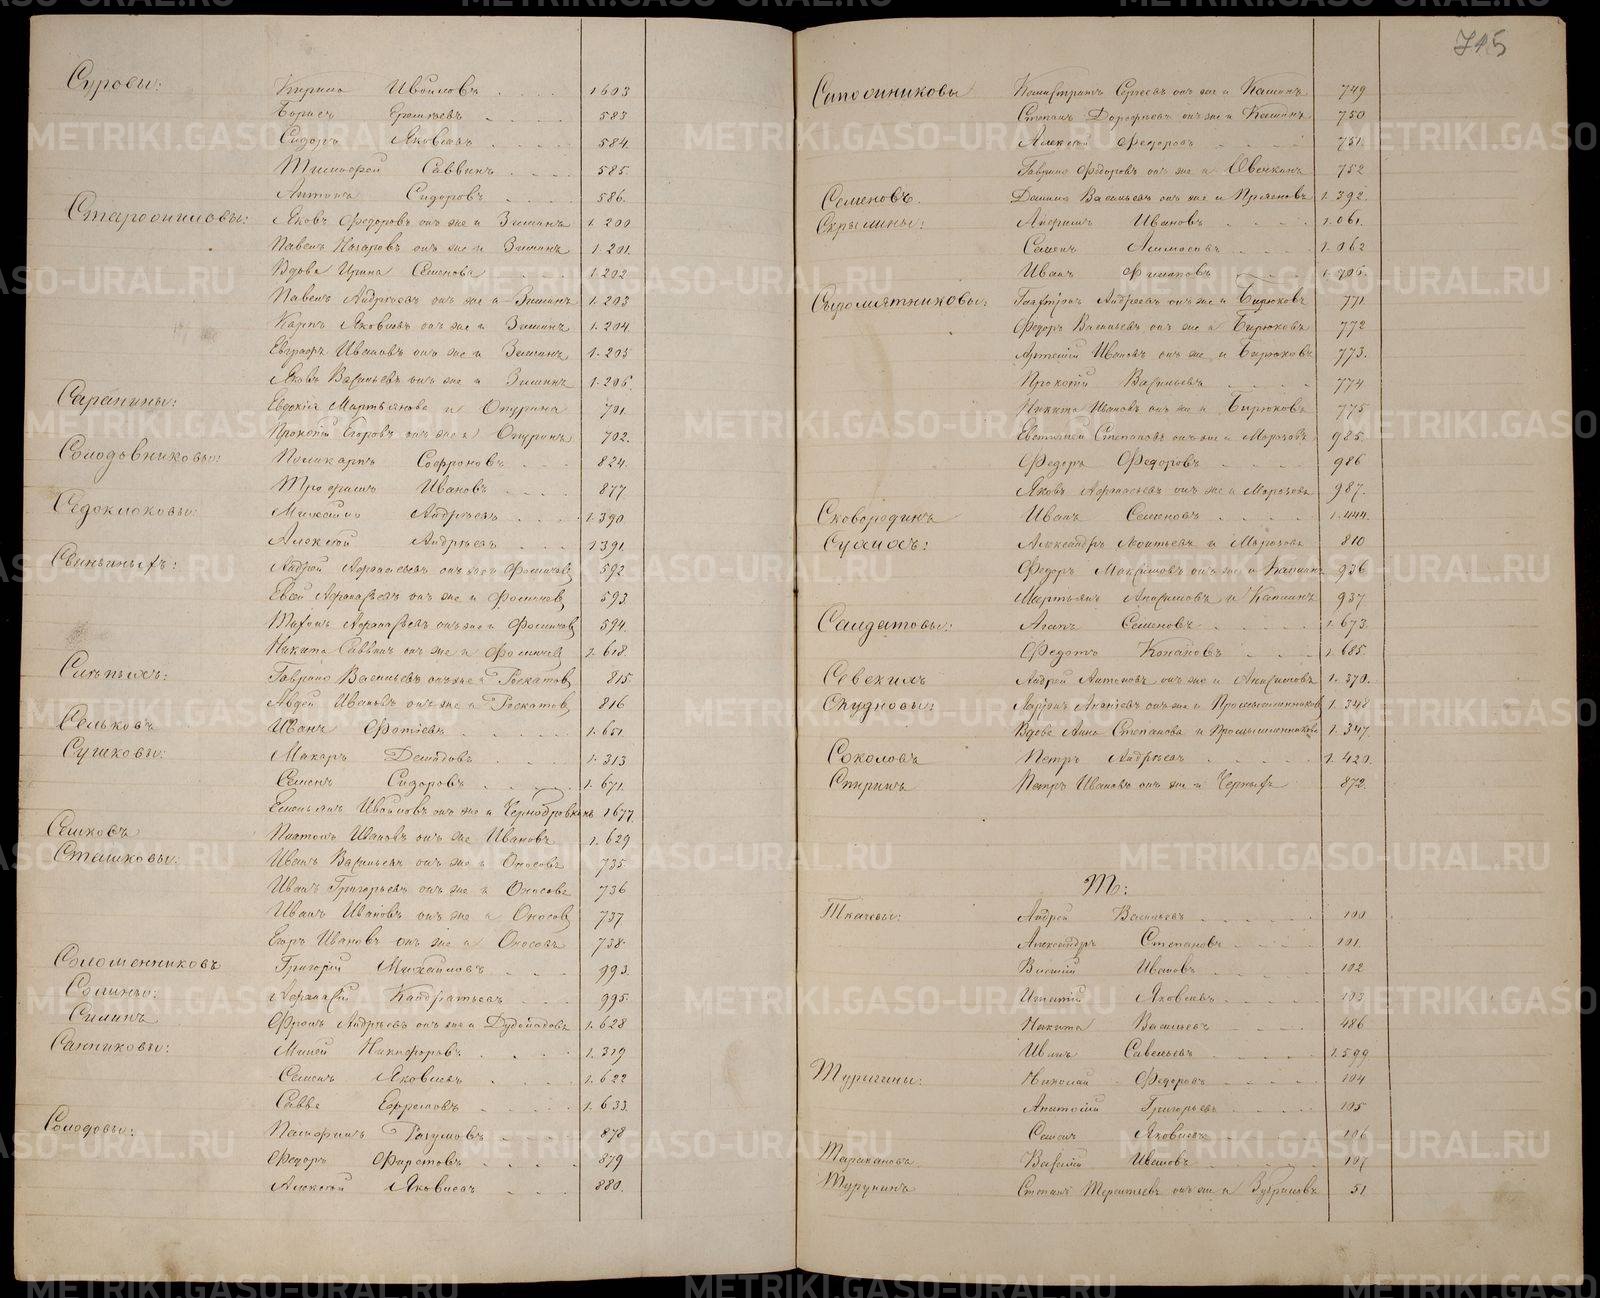 Суровы: Кирило Ивойловъ 1603
Борисъ 583
Сидоръ Яковлевъ 584.
Тимофей Саввинъ 585.
Антонъ Сидоровъ 586.
Яковъ Федоровъ онъ же и Зиминъ 1.200
Павелъ Назаровъ онъ же и Зиминъ 1.201.
Вдова Ирина Семенова 1.202
Павелъ Андреевъ онъ же и Зиминъ 1.203
Карпъ Яковлевъ онъ же и Зиминъ 1.204.
Евграфъ Ивановъ онъ же и Зиминъ 1.205
Яковъ Васильевъ онъ же и Зиминъ 1.206.
Сарапины: Евдокія Мартьянова и Опурина 701.
Прокопій Егоровъ онъ же и Опуринъ 702.
Солодовниковы: Поликарпъ Софроновъ 824.
Трофимъ Ивановъ 877
Седоклоковы: Михайло Андреевъ 1.390.
Алексей Андреевъ 1391.
Свиньиныхъ: Андрей Афанасьевъ онъ же и Фомичевъ 592
Евсей Афанасьевъ онъ же и Фомичевъ 593
Тихонъ Афанасьевъ онъ же и Фомичевъ 594.
Никита Саввинъ онъ же и Фомичевъ 1.618.
Слепыхъ: Гаврило Васильевъ онъ же и Роскатовъ 815
Авдей Ивановъ онъ же и Роскатовъ 816
Сельковъ Иванъ Фотіевъ 1.651
Сушковы: Макаръ Демидовъ 1.313
Семенъ Сидоровъ 1.671.
Емельянъ Ивойловъ онъ же и Чернобровкинъ 1677.
Сешковъ Платонъ Ивановъ онъ же Ивановъ 1.629
Сташковы: Иванъ Васильевъ онъ же и Оносовъ 735
Иванъ Григорьевъ онъ же и Оносовъ 736
Иванъ Ивановъ онъ же и Оносовъ 737
Егоръ Ивановъ онъ же и Оносовъ 738
Соломенниковъ Григорій Михайловъ 993.
Сомины: Афанасій Кандратьевъ 995.
Силинъ Фролъ Андреевъ онъ же и 1.628
Санниковы: Миней Никифоровъ 1.319
Семенъ Яковлевъ 1.622
Савва Ефремовъ 1.633.
Солодовы: Памфилъ Разумовъ 878
Федоръ 879
Алексей Яковлевъ 880.
715
Калистратъ Сергеевъ онъ же и Кашинъ 749
Степанъ Дорофеевъ онъ же и Кашинъ 750
Алексей Федоровъ 751.
Гаврило Федоровъ онъ же и Овечкинъ 752
Семеновъ. Данило Васильевъ онъ же и 1.392.
Скрыпины: Ивановъ 1.061.
Семенъ 1.062
Иванъ Филиповъ 1.706.
Сыромятниковы: Андреевъ онъ же и Бирюковъ 771.
Федоръ Васильевъ онъ же и Бирюковъ 772
Артемій Ивановъ онъ же и Бирюковъ 773.
Прокопій Васильевъ 774
Никита Ивановъ онъ же и Бирюковъ 775
Евстигней Степановъ онъ же и Морозовъ 985.
Федоръ Федоровъ 986
Яковъ Афанасьевъ онъ же и Морозовъ 987.
Сковородинъ Иванъ Семеновъ 1.444.
Сухихъ: Александръ Леонтьевъ и Морозовъ 810
Федоръ Максимовъ онъ же и Каплинъ 936
Мартьянъ Анисимовъ и Каплинъ 937
Салдатовы: Агапъ Семеновъ 1.673.
Федотъ Конановъ 1.685.
Севекилъ Андрей Антоновъ онъ же и Анисимовъ 1.370.
Скудновы: Ларіонъ Ананіевъ онъ же и Промышленниковъ 1.348
Вдова Анна Степанова и Промышленникова 1.347
Соколовъ Петръ Андреевъ 1.420.
Спиринъ Петръ Ивановъ онъ же и Черныхъ 872.
Т:
Ткачевы: Андрей Васильевъ 100
Александръ Степановъ 101.
Василій Ивановъ 102
Игнатій Яковлевъ 103
Никита Васильевъ 486
Иванъ Савельевъ 1.599
Туригины: Николай Федоровъ 104
Анатолій Григорьевъ 105
Семенъ Яковлевъ 106
Таракановъ Василій Ивановъ 107
Турунинъ Степанъ Терентьевъ онъ же и 51